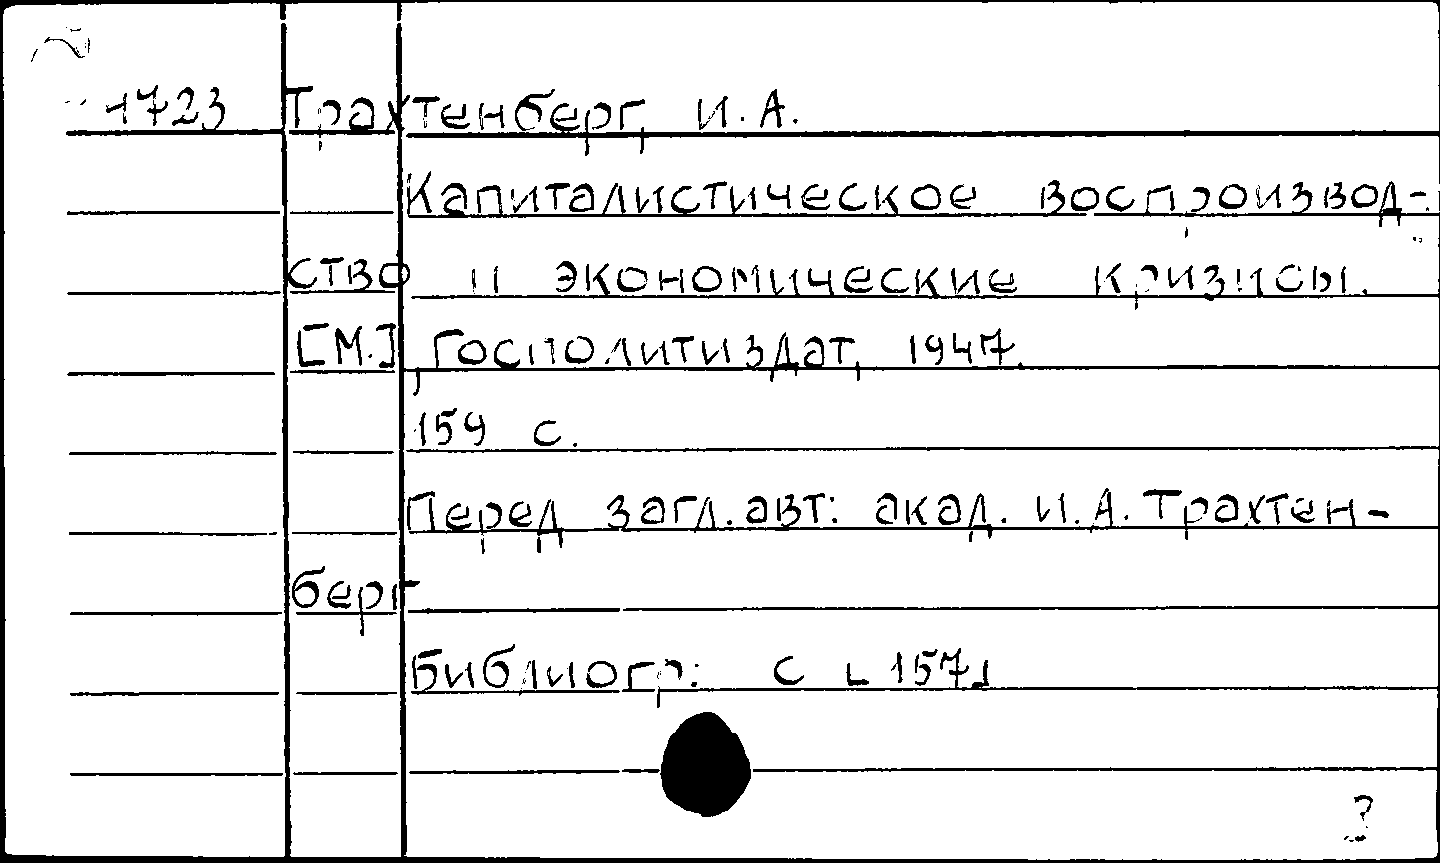 1723 Трахтенберг, И.А.
Капиталистическое воспроизвод-
ство и экономические кризисы.
[М.], Госполитиздат, 1947.
159 с.
Перед загл. авт: акад. И.А. Трахтен-
берг
Библиогр: с [157]
3